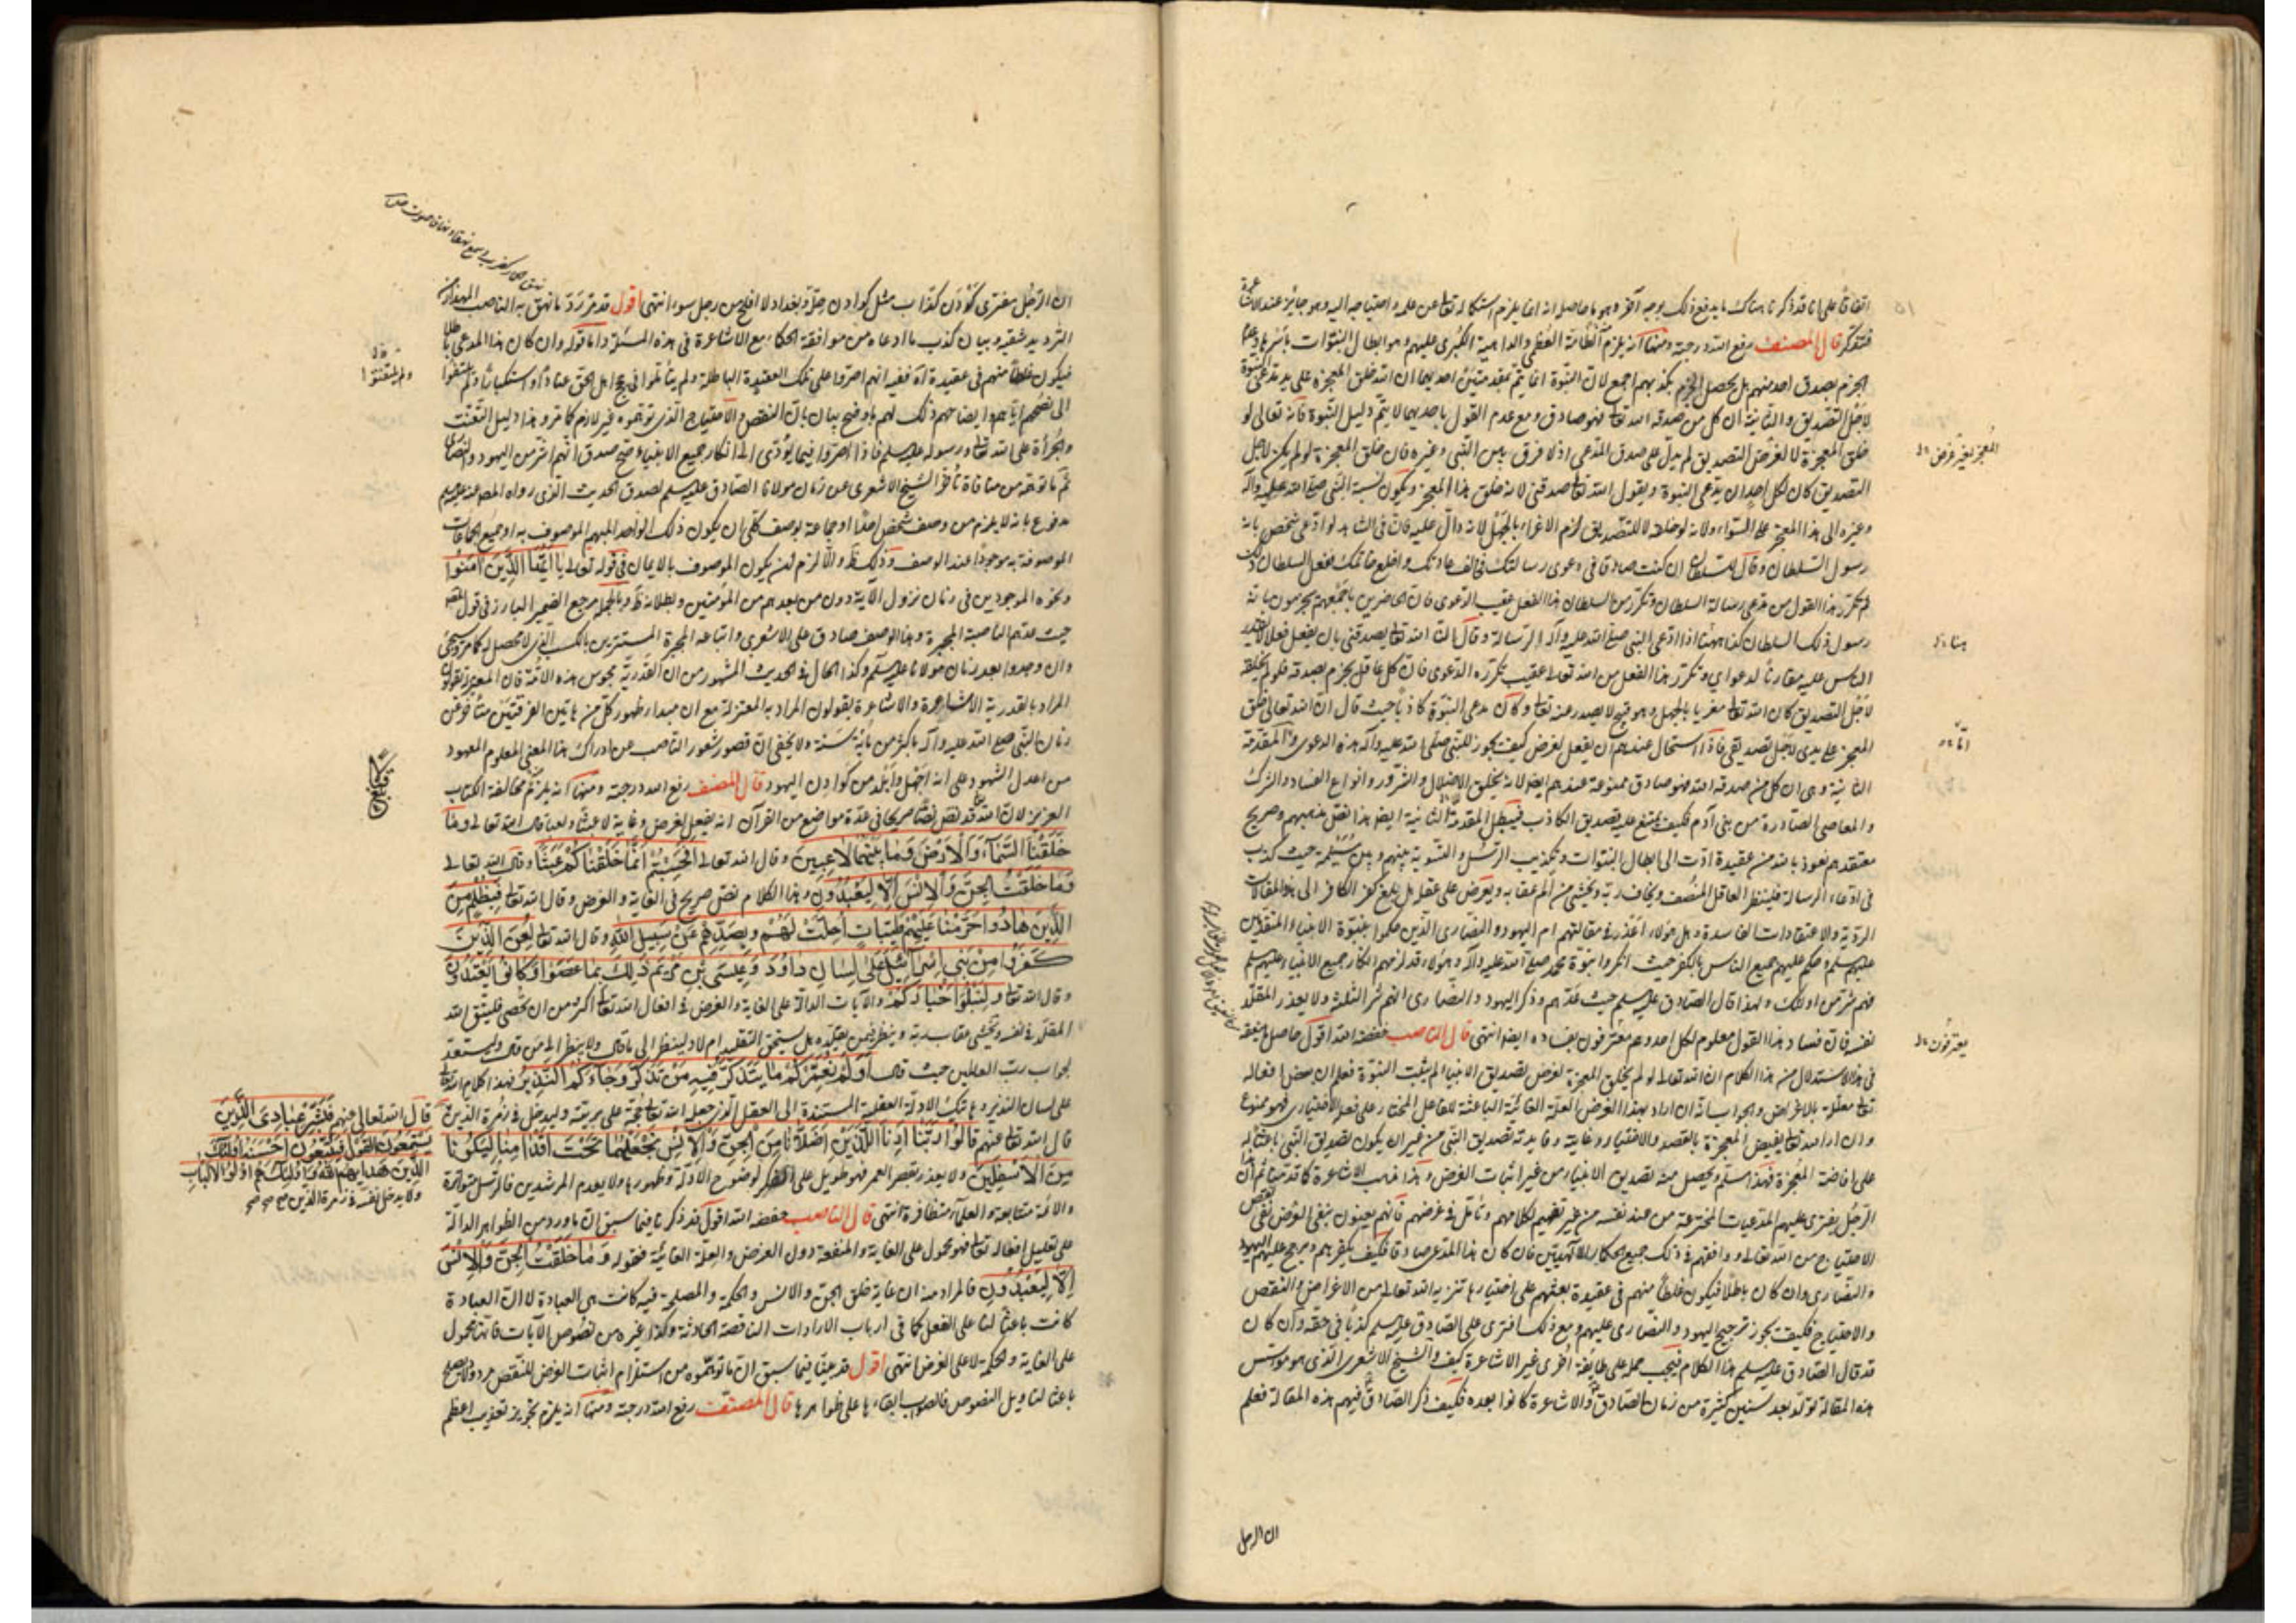 اتفاقا على انا قد ذكرنا هناك ما يدفع ذلك بوجه آخر وهو ما حاصله انه انما يلزم استكماله تعالى عن علمه واحتياجه اليه وهو جائز عند الاشاعرة
فتذكر قال المصنف رفع الله درجته ومنها انه يلزم الطامة العظمى والداهية الكبرى عليهم وهو ابطال النبوات باسرها وعدم
الجزم بصدق احد منهم بل يحصل الجزم بكذبهم اجمع لان النبوة انما يتم بمقدمتين احديهما ان الله خلق المعجزة على يد مدعى النبوة
لاجل التصديق والثانية ان كل من صدقه الله تعالى فهو صادق ومع عدم القول باحديهما لا يتم دليل النبوة فانه تعالى لو
خلق المعجزة لا لغرض التصديق لم يدل على صدق المدعى اذ لا فرق بين النبي وغيره فان خلق المعجزة لو لم يكن لاجل
المعجز لغير غرض
التصديق كان لكل احد ان يدعى النبوة ويقول الله تعالى صدقنى لانه خلق هذا المعجز ويكون نسبة النبي صلى الله عليه وآله
وغيره الى هذا المعجز على السواء ولانه لو خلقه لا للتصديق لزم الاغراء بالجهل لانه دال عليه فان في الشاهد لو ادعى شخص بانه
رسول السلطان وقال للسلطان ان كنت صادقا في دعوى رسالتك فخالف عادتك واخلع خاتمك ففعل السلطان ذلك
ثم تكرر هذا القول من مدعى رسالة السلطان وتكرر من السلطان هذا الفعل عقيب الدعوى فان الحاضرين باجمعهم يجزمون بانه
رسول ذلك السلطان كذا ههنا اذا ادعى النبي صلى الله عليه وآله الرسالة وقال ان الله تعالى يصدقنى بان يفعل فعلا لا يقدر
هنا
الناس عليه مقارنا لدعواي وتكرر هذا الفعل من الله تعالى عقيب تكرره الدعوى فان كل عاقل يجزم بصدقه فلو لم يخلقه
لاجل التصديق كان الله تعالى مغريا بالجهل وهو قبيح لا يصدر عنه تعالى وكان مدعى النبوة كاذبا حيث قال ان الله تعالى خلق
المعجز على يدى لاجل تصديقى فاذا استحال عندهم ان يفعل لغرض كيف يجوز للنبي صلى الله عليه وآله هذه الدعوى والمقدمة
الثانية وهي ان كل من صدقه الله فهو صادق ممنوعة عندهم ايضا لانه يخلق الاضلال والشرور وانواع الفساد والشرك
والمعاصي الصادرة من بنى آدم فكيف يمتنع عليه تصديق الكاذب فيبطل المقدمة الثانية ايضا هذا نص مذهبهم وصريح
معتقدهم نعوذ بالله من عقيدة ادت الى ابطال النبوات وتكذيب الرسل والتسوية بينهم وبين مسيلمة حيث كذب
في ادعاء الرسالة فلينظر العاقل المنصف ويخاف ربه ويخشى من اليم عقابه ويعرض على عقله هل بلغ كفر الكافر الى هذه المقالات
الردية والاعتقادات الفاسدة وهل هؤلاء اعذر في مقالتهم ام اليهود والنصارى الذين حكموا بنبوة الانبياء المتقدمين
عليهم السلام وحكم عليهم جميع الناس بالكفر حيث انكروا نبوة محمد صلى الله عليه وآله وهؤلاء قد لزمهم انكار جميع الانبياء عليهم السلام
فهم شر من اولئك ولهذا قال الصادق عليه السلام حيث عدهم وذكر اليهود والنصارى انهم شر الثلثة ولا يعذر المقلد
لنفسه فان فساد هذا القول معلوم لكل احد وهم معترفون بفساده ايضا انتهى قال الناصب خفضه الله اقول حاصل ما ينقله
يعترفون
في هذا الاستدلال من هذا الكلام ان الله تعالى لو لم يخلق المعجزة لغرض تصديق الانبياء لم يثبت النبوة فعلم ان بعض افعاله
تعالى معللة بالاغراض والجواب انه ان اراد بهذا الغرض العلة الغائية الباعثة للفاعل المختار على فعله الاختياري فهو ممنوع
وان اراد ان الله تعالى يفيض المعجزة بالقصد والاختيار وغايته وفايدته تصديق النبي من غير ان يكون تصديق النبي باعثا له
على افاضة المعجزة فهذا مسلم ويحصل منه تصديق الانبياء من غير اثبات الغرض وهذا مذهب الاشاعرة كما قدمنا ثم ان
الرجل يفترى عليهم المدعيات المخترعة من عند نفسه من غير تفهيم لكلامهم وتأمل في غرضهم فانهم يعنون بنفي الغرض نفي
الاحتياج من الله تعالى ووافقهم في ذلك جميع الحكماء الالهيين فان كان هذا المدعى صادقا فكيف يكفرهم ويرجح عليهم اليهود
والنصارى وان كان باطلا فيكون غلطا منهم في عقيدة بعثهم على اختيارها تنزيه الله تعالى من الاغراض والنقص
والاحتياج فكيف يجوز ترجيح اليهود والنصارى عليهم ومع ذلك افترى على الصادق عليه السلام كذبا في حقه وان كان
قد قال الصادق عليه السلام هذا الكلام فيجب حمله على طائفة اخرى غير الاشاعرة كيف والشيخ الاشعرى الذي هو مؤسس
هذه المقالة تولد بعد سنين كثيرة من زمان الصادق والاشاعرة كانوا بعده فكيف ذكر الصادق فيهم هذه المقالة فعلم
ان الرجل
ان الرجل مفترى كودن كذاب مثل كوادن حلة وبغداد لا افلح من رجل سوء انتهى اقول قد مر رد ما نهق به الناصب المهذار من
الترديد بشقيه وبيان كذب ما ادعاه من موافقة الحكماء مع الاشاعرة في هذه المسئلة واما قوله وان كان هذا المدعى باطلا
فيكون غلطا منهم في عقيدة اه ففيه انهم اصروا على تلك العقيدة الباطلة ولم يتأملوا في حجج اهل الحق عنادا واستكبارا ولم يلتفتوا
ولم يلتفتوا
الى نصحهم اياهم وايضاحهم ذلك لهم باوضح بيان بان النقص والاحتياج الذي توهموه غير لازم كما مر وهذا دليل التعنت
والجرأة على الله تعالى ورسوله عليه السلام فاذا اصروا فيما يؤدى الى انكار جميع الانبياء وضح صدق انهم اشر من اليهود والنصارى
ثم ما توهمه من منافاة تأخر الشيخ الاشعرى عن زمان مولانا الصادق عليه السلام لصدق الحديث الذي رواه المصنف عنه عليه السلام
مدفوع بانه لا يلزم من وصف شخص احدا او جماعة بوصف كلى ان يكون ذلك الواحد المبهم الموصوف به او جميع الجماعات
الموصوفة به موجودا عند الوصف وذلك ظ والا لزم ان يكون الموصوف بالايمان في قوله تعالى يا ايها الذين آمنوا
ونحوه الموجودين في زمان نزول الآية دون من بعدهم من المؤمنين وبطلانه ظ وبالجملة مرجع الضمير البارز في قول المصنف
حيث عدهم الناصبة المجبرة وهذا الوصف صادق على الاشعرى واتباعه المجبرة المستترين بالكسب الذي لا محصل له كما مر وسيجئ
وان وجدوا بعد زمان مولانا عليه السلام وكذا الحال في الحديث المشهور من ان القدرية مجوس هذه الامة فان المعتزلة يقولون
المراد بالقدرية الاشاعرة والاشاعرة يقولون المراد به المعتزلة مع ان مبدا ظهور كل من هاتين الفرقتين متأخر عن
زمان النبي صلى الله عليه وآله باكثر من مائة سنة ولا يخفى ان قصور شعور الناصب عن ادراك هذا المعنى المعلوم المعهود
من اعدل الشهود على انه اجهل وابلد من كوادن اليهود قال المصنف رفع الله درجته ومنها انه يلزم مخالفة الكتاب
العزيز لان الله تعالى قد نص نصا صريحا في عدة مواضع من القرآن انه يفعل لغرض وغاية لا عبثا ولعبا قال الله تعالى وما
خلقنا السماء والارض وما بينهما لاعبين وقال الله تعالى افحسبتم انما خلقناكم عبثا وقال الله تعالى
وما خلقت الجن والانس الا ليعبدون وهذا الكلام نص صريح في الغاية والغرض وقال الله تعالى فبظلم من
الذين هادوا حرمنا عليهم طيبات احلت لهم وبصدهم عن سبيل الله وقال الله تعالى لعن الذين
كفروا من بني اسرائيل على لسان داود وعيسى بن مريم ذلك بما عصوا وكانوا يعتدون
وقال الله تعالى ولنبلو اخباركم والآيات الدالة على الغاية والغرض في افعال الله تعالى اكثر من ان تحصى فليتق الله
المقلد في نفسه ويخشى عقاب ربه وينظر فيمن يقلده هل يستحق التقليد ام لا ولينظر الى ما قال ولا ينظر الى من قال وليستعد
لجواب رب العالمين حيث قال اولم نعمركم ما يتذكر فيه من تذكر وجاءكم النذير فهذا كلام الله تعالى
على لسان النذير وهاتيك الادلة العقلية المستندة الى العقل الذي جعله الله تعالى حجة على بريته وليدخل في زمرة الذين
قال الله تعالى فيهم فبشر عبادى الذين
يستمعون القول فيتبعون احسنه اولئك
الذين هداهم الله واولئك هم اولوا الالباب
ولا يدخل نفسه في زمرة الذين صح
قال الله تعالى عنهم قالوا ربنا ارنا اللذين اضلانا من الجن والانس نجعلهما تحت اقدامنا ليكونا
من الاسفلين ولا يعذر بقصر العمر فهو طويل على الفكر لوضوح الادلة وظهورها ولا بعدم المرشدين فالرسل متواترة
والائمة متتابعة والعلماء متظافرة انتهى قال الناصب خفضه الله اقول قد ذكرنا فيما سبق ان ما ورد من الظواهر الدالة
على تعليل افعاله تعالى فهو محمول على الغاية والمنفعة دون الغرض والعلة الغائية فقوله وما خلقت الجن والانس
الا ليعبدون فالمراد منه ان غاية خلق الجن والانس والحكمة والمصلحة فيه كانت هي العبادة لا ان العبادة
كانت باعثا لنا على الفعل كما في ارباب الارادات الناقصة الحادثة وكذا غيره من نصوص الآيات فانها محمول
على الغاية والحكمة لا على الغرض انتهى اقول قد بينا فيما سبق ان ما توهموه من استلزام اثبات الغرض للنقص مردود فلا يصلح
باعثا لتاويل النصوص فالصواب ابقاءها على ظواهرها قال المصنف رفع الله درجته ومنها انه يلزم تجويز تعذيب اعظم